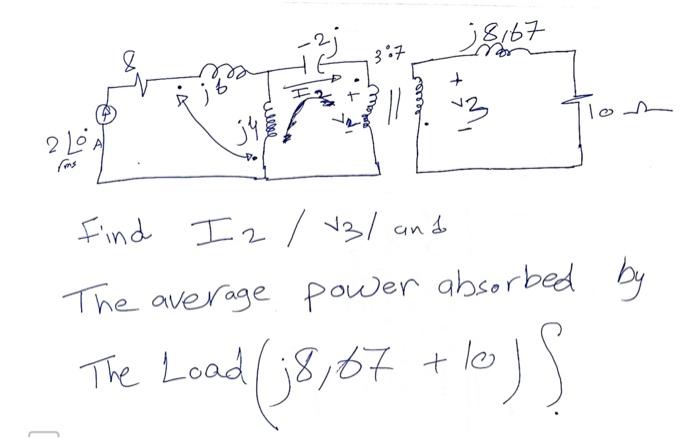 -2j
j8,67
8
3:7
j6
I2
+
+
j4
V2
||
V3
10 Ω
2∟0° A
-
rms
Find I2 / V3 / and
The average power absorbed by
The Load (j8,67 + 10) ?